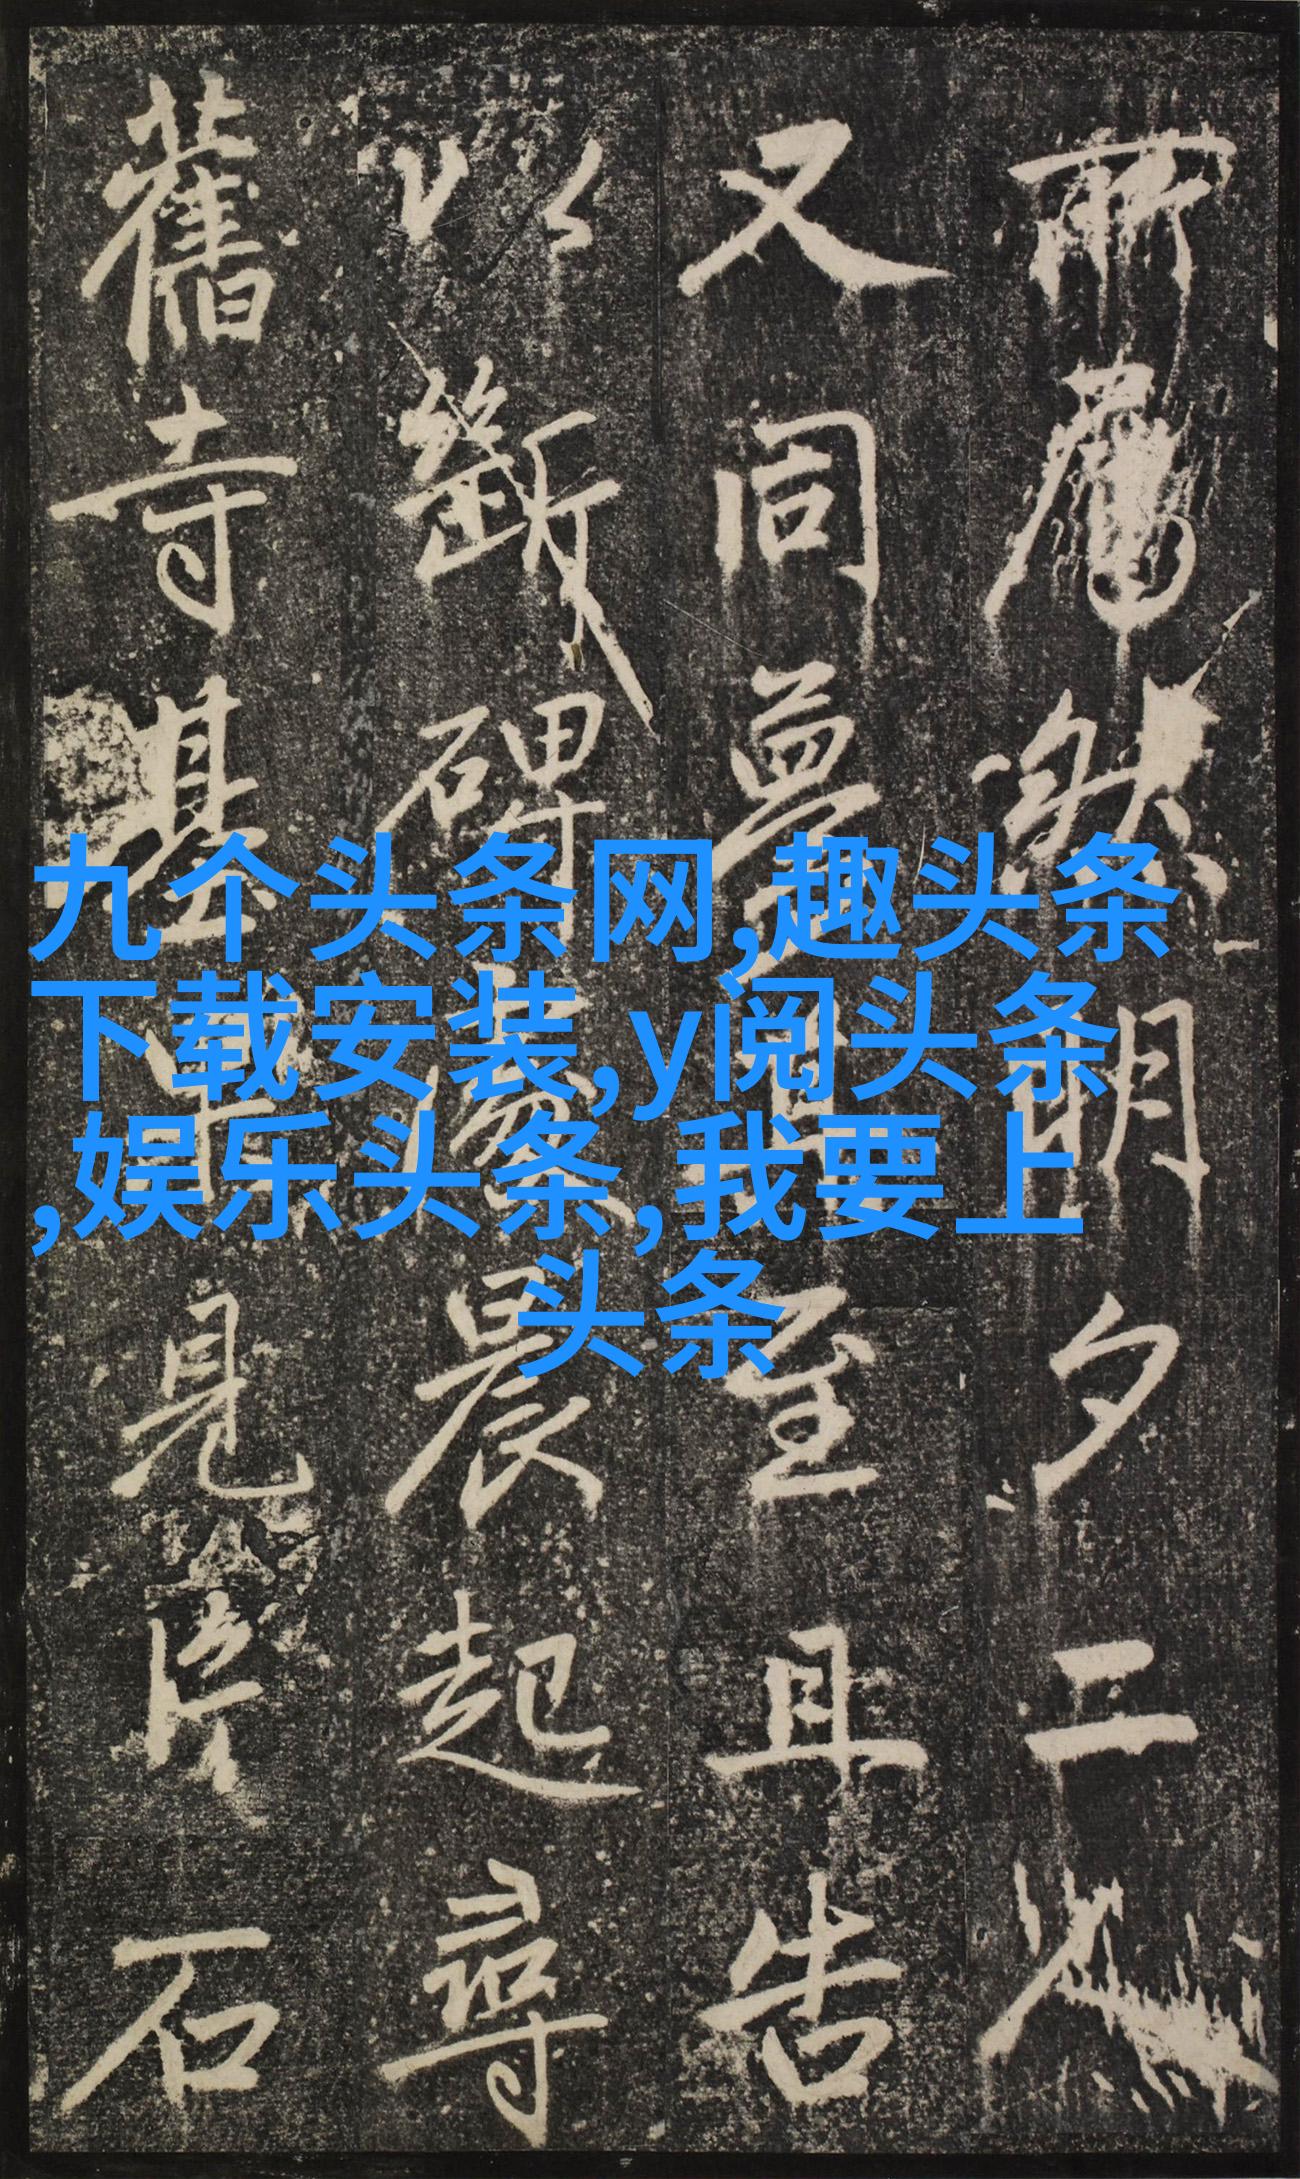 九个头条网,趣头条
下载安装,y阅头条
,娱乐头条,我要上
头条
然朝夕
又同夢至且告
以斷碑晨起尋
舊寺基果見片石